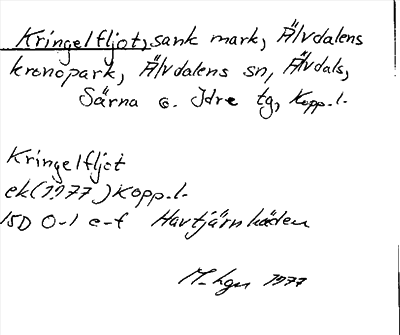 Kringelfljot, sank mark, Älvdalens
kronopark, Älvdalens sn, Älvdals,
Särna o. Idre tg, Kopp.l.
Kringelfljot
ek(1977) Kopp.l.
15D 0-1 e-f Havtjärnhäden
M-hgn 1977